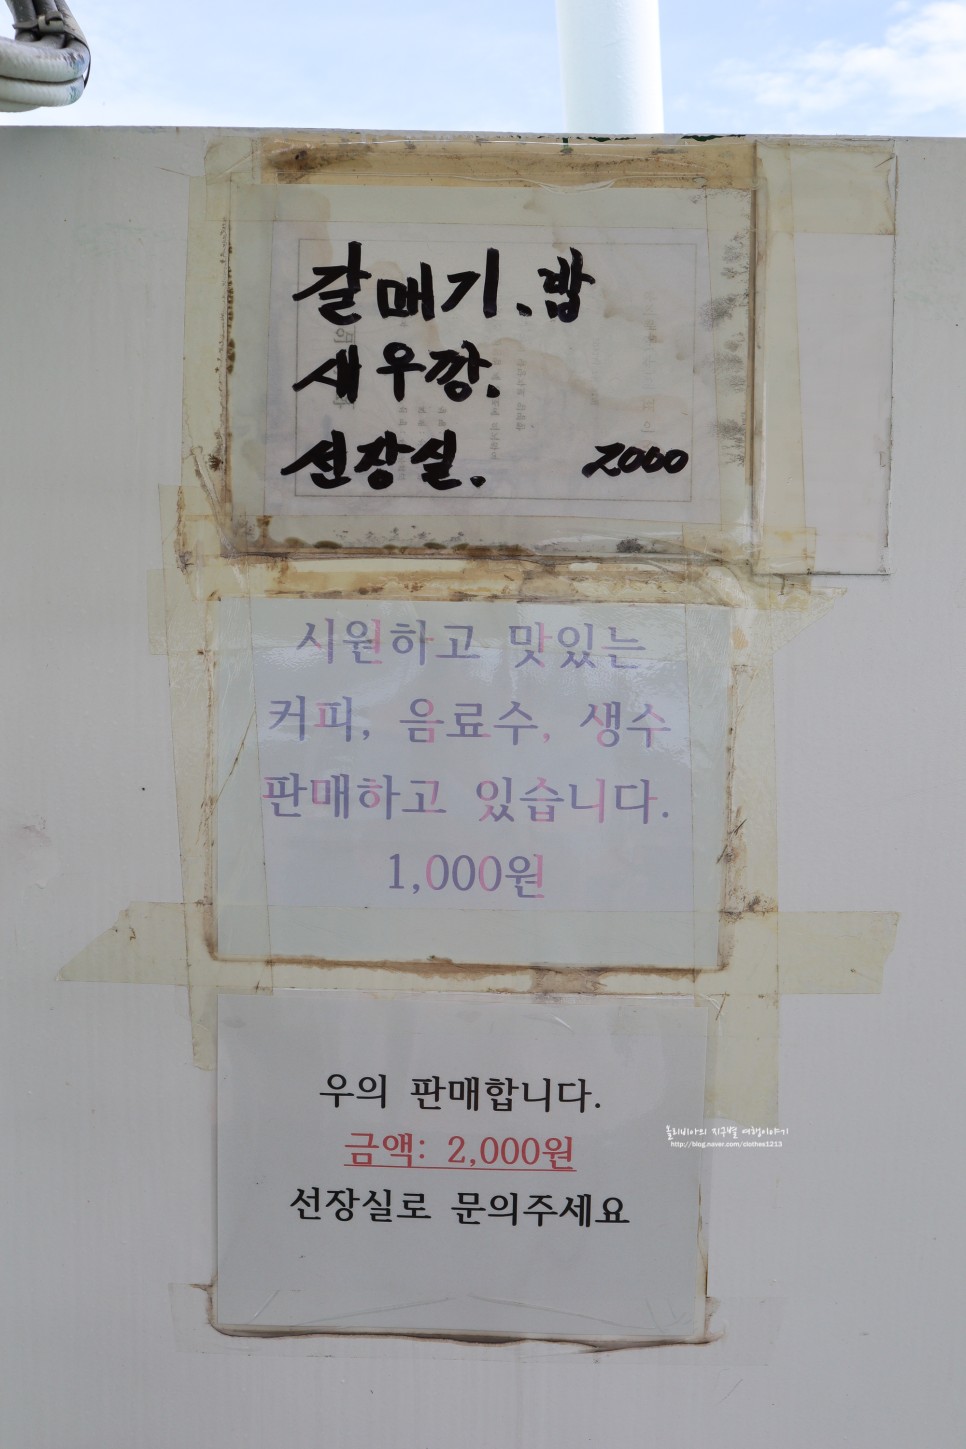 갈매기.밥
새우깡.
선장실. 2000
시원하고 맛있는
커피, 음료수, 생수
판매하고 있습니다.
1,000원
우의 판매합니다.
금액: 2,000원
선장실로 문의주세요
올리비아의 지구별 여행이야기
http://blog.naver.com/clothes1213